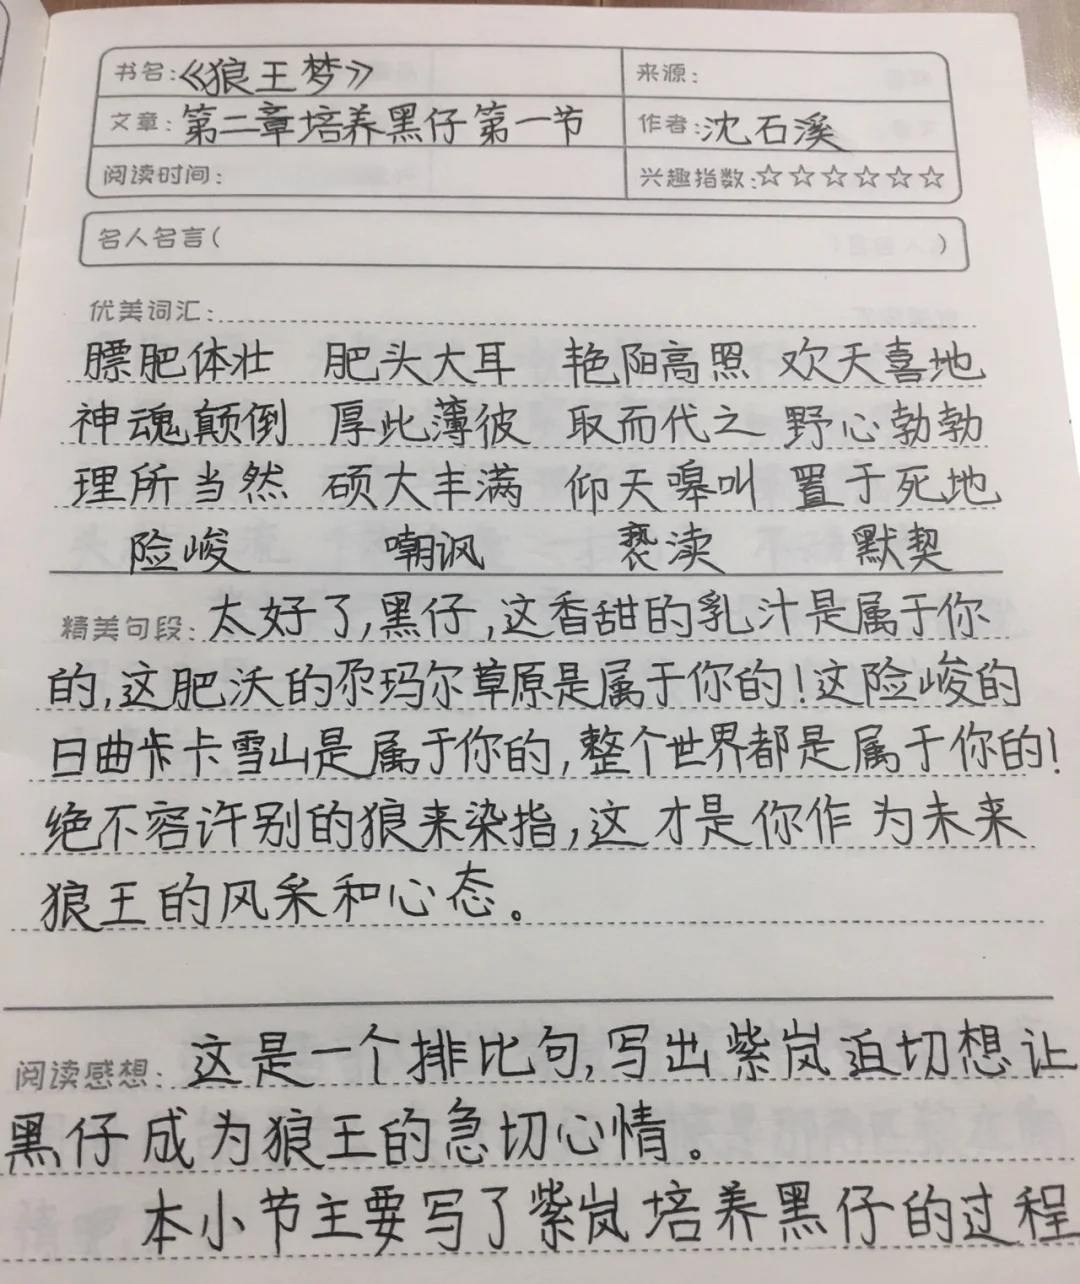 书名:《狼王梦》 来源:
文章:第二章培养黑仔第一节 作者:沈石溪
阅读时间: 兴趣指数:☆☆☆☆☆☆
名人名言( )
优美词汇:
膘肥体壮 肥头大耳 艳阳高照 欢天喜地
神魂颠倒 厚此薄彼 取而代之 野心勃勃
理所当然 硕大丰满 仰天嗥叫 置于死地
险峻 嘲讽 亵渎 默契
精美句段:太好了,黑仔,这香甜的乳汁是属于你
的,这肥沃的尕玛尔草原是属于你的!这险峻的
日曲卡卡雪山是属于你的,整个世界都是属于你的!
绝不容许别的狼来染指,这才是你作为未来
狼王的风采和心态。
阅读感想:这是一个排比句,写出紫岚迫切想让
黑仔成为狼王的急切心情。
本小节主要写了紫岚培养黑仔的过程